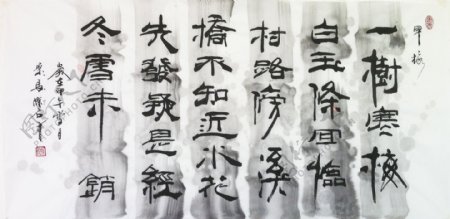 早梅
一樹寒梅
白玉條迥臨
村路傍溪
橋不知近水花
先發疑是經
冬雪未銷
歲在甲午